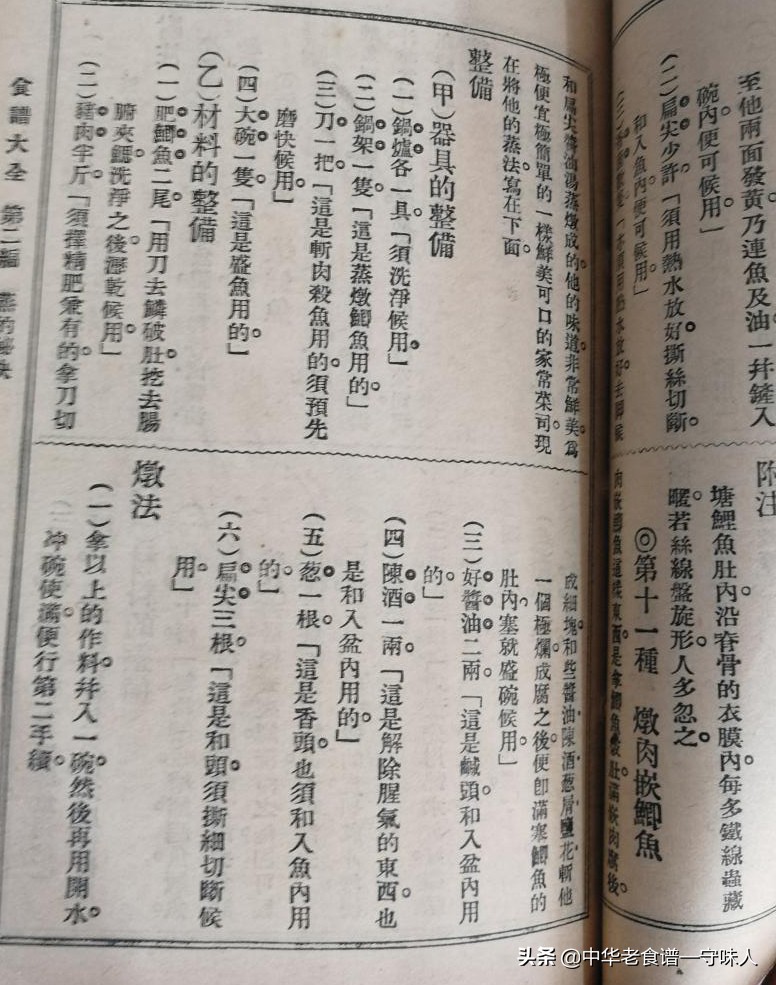 至他兩面發黃乃連魚及油一幷鏟入
碗內便可候用」
(二)扁尖少許「須用熱水放好撕絲切斷
和入魚內便可候用」
附注
塘鯉魚肚內沿脊骨的衣膜內每多鐵線蟲藏
暱若絲線盤旋形人多忽之
◎第十一種 燉肉嵌鯽魚
肉嵌鯽魚這樣東西是拿鯽魚破肚滿嵌肉腐後
和扁尖醬油湯蒸燉成的他的味道非常鮮美爲
極便宜極簡單的一樣鮮美可口的家常菜司現
在將他的蒸法寫在下面
整備
(甲)器具的整備
(一)鍋爐各一具「須洗淨候用」
(二)鍋架一隻「這是蒸燉鯽魚用的」
(三)刀一把「這是斬肉殺魚用的須預先
磨快候用」
(四)大碗一隻「這是盛魚用的」
(乙)材料的整備
(一)肥鯽魚二尾「用刀去鱗破肚挖去腸
腑夾鰓洗淨之後瀝乾候用」
(二)豬肉半斤「須擇精肥兼有的拿刀切
成細塊和些醬油陳酒葱屑鹽花斬他
一個極爛成腐之後便卽滿塞鯽魚的
肚內塞就盛碗候用」
(三)好醬油二兩「這是鹹頭和入盆內用
的」
(四)陳酒一兩「這是解除腥氣的東西也
是和入盆內用的」
(五)葱一根「這是香頭也須和入魚內用
的」
(六)扁尖三根「這是和頭須撕細切斷候
用」
燉法
(一)拿以上的作料幷入一碗然後再用開水
冲碗使滿便行第二手續
食譜大全 第二編 蒸的祕訣
头条 @中华老食谱—守味人